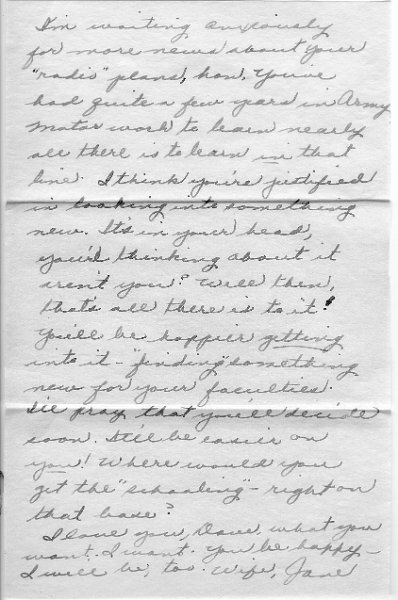 I'm waiting anxiously
for more news about your
"radio" plans, hon. You've
had quite a few years in Army
Motor work to learn nearly
all there is to learn in that
line. I think you're justified
in looking into something
new. It's in your head,
you're thinking about it
aren't you? Well then,
that's all there is to it!
You'll be happier getting
into it - "finding" something
new for your faculties.
I'll pray that you'll decide
soon. It'll be easier on
you! Where would you
get the "schooling" - right on
that base?
I love you, Dave, what you
want, I want. You be happy -
I will be, too. Wife, Jane